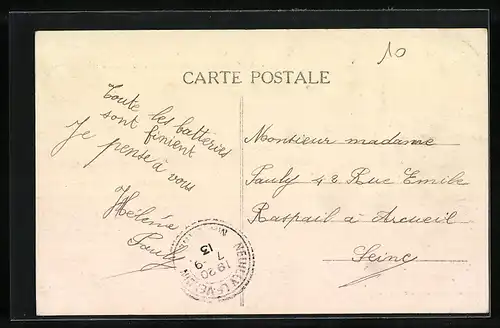 10
CARTE POSTALE
Toute les batteries
sont finient
Je pense à vous
Hélène
Pauly
Monsieur madame
Pauly 43 Rue Emile
Raspail à Arcueil
Seine
13
7 -9
1920